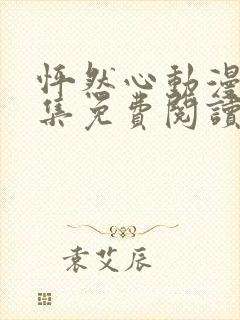 怦然心動漫
集免費閱讀
袁艾辰